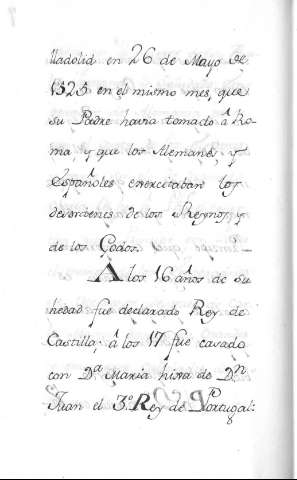 lladolid en 26 de Mayo de
1525 en el mismo mes, que
su Padre havia tomado â Ro-
ma, y que los Alemanes, y
Españoles exercitaban los
desordenes de los Reynos, y
de los Godos.
A los 16 años de su
hedad fue declarado Rey de
Castilla; â los 17 fue casado
con D.ª Maria hixa de D.n
Juan el 3.º Rey de Portugal: